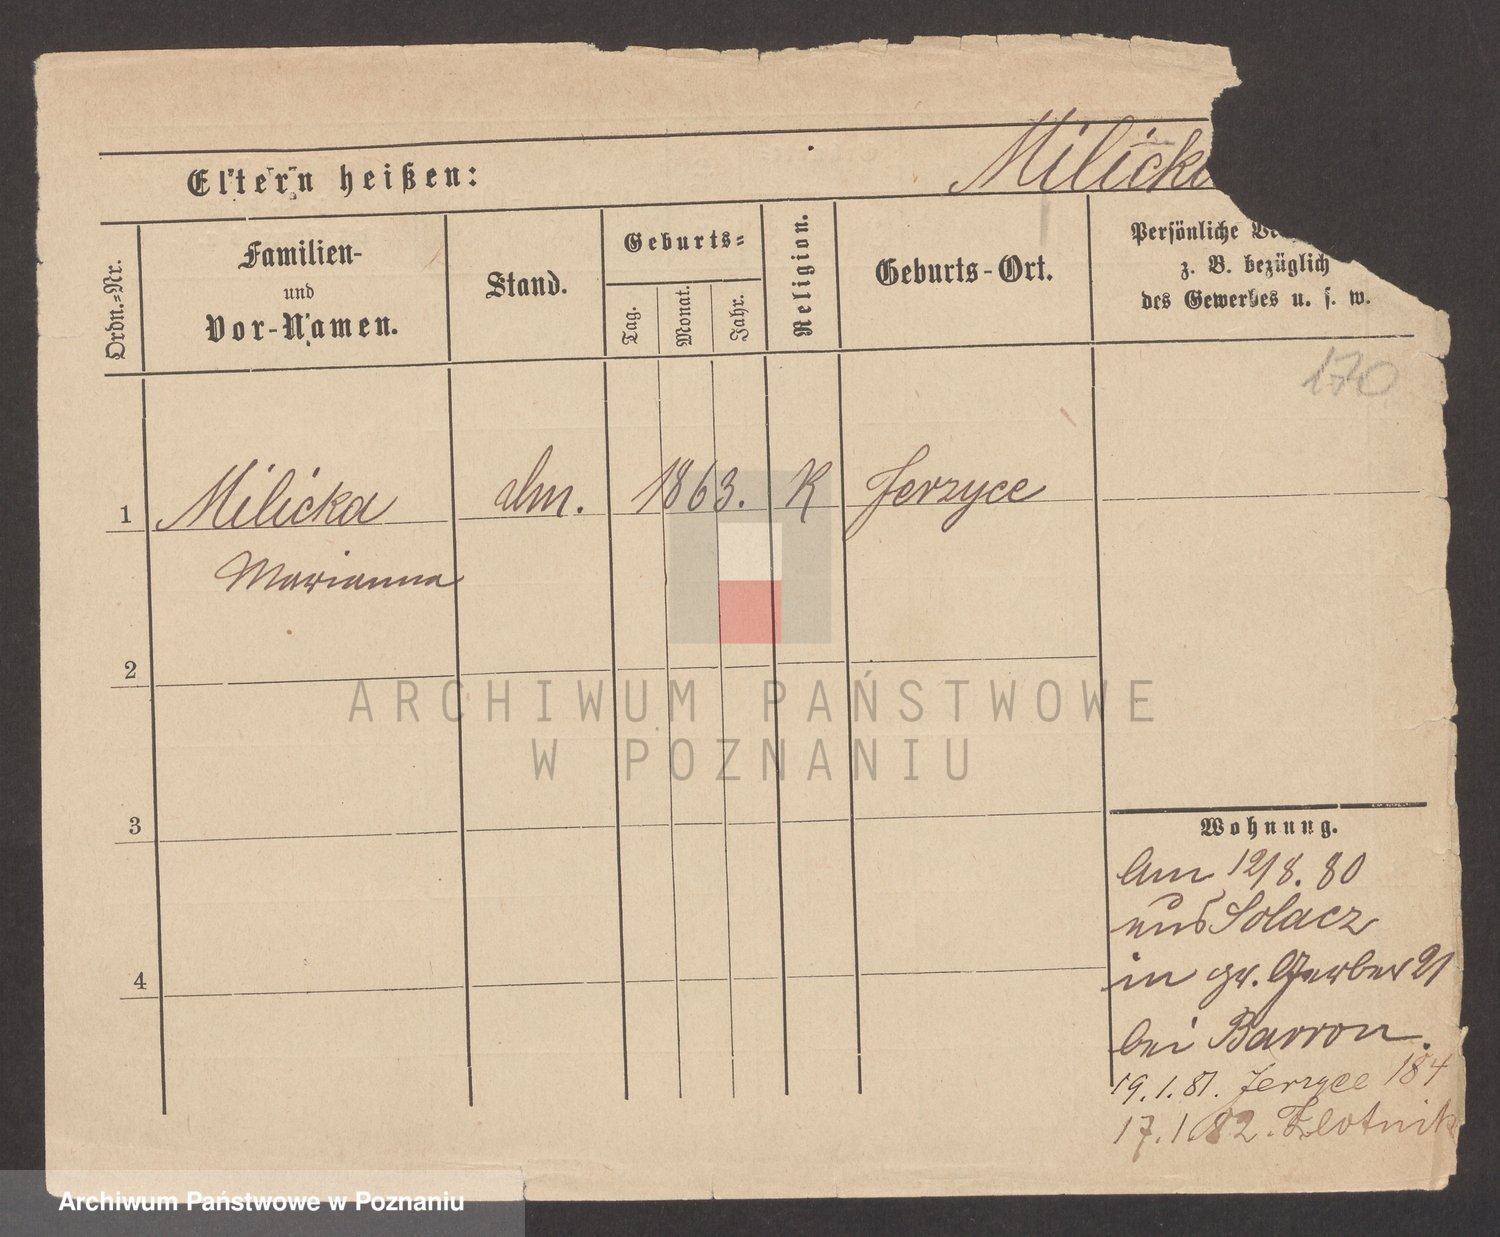 Eltern heißen:
Milick
Ordn.=Nr.
Familien-
und
Vor-Namen.
Stand.
Geburts=
Tag.
Monat.
Jahr.
Religion.
Geburts-Ort.
Persönliche
z. B. bezüglich
des Gewerbes u. s. w.
170
1
Milicka
Marianna
1863.
K
Jerzyce
2
3
4
Wohnung.
Am 12/8. 80
aus Solacz
in gr. Gerber 21
bei Barron.
19.1.81. Jerzyce 184
17.1.82. Zlotnik
ARCHIWUM PAŃSTWOWE
W POZNANIU
Archiwum Państwowe w Poznaniu